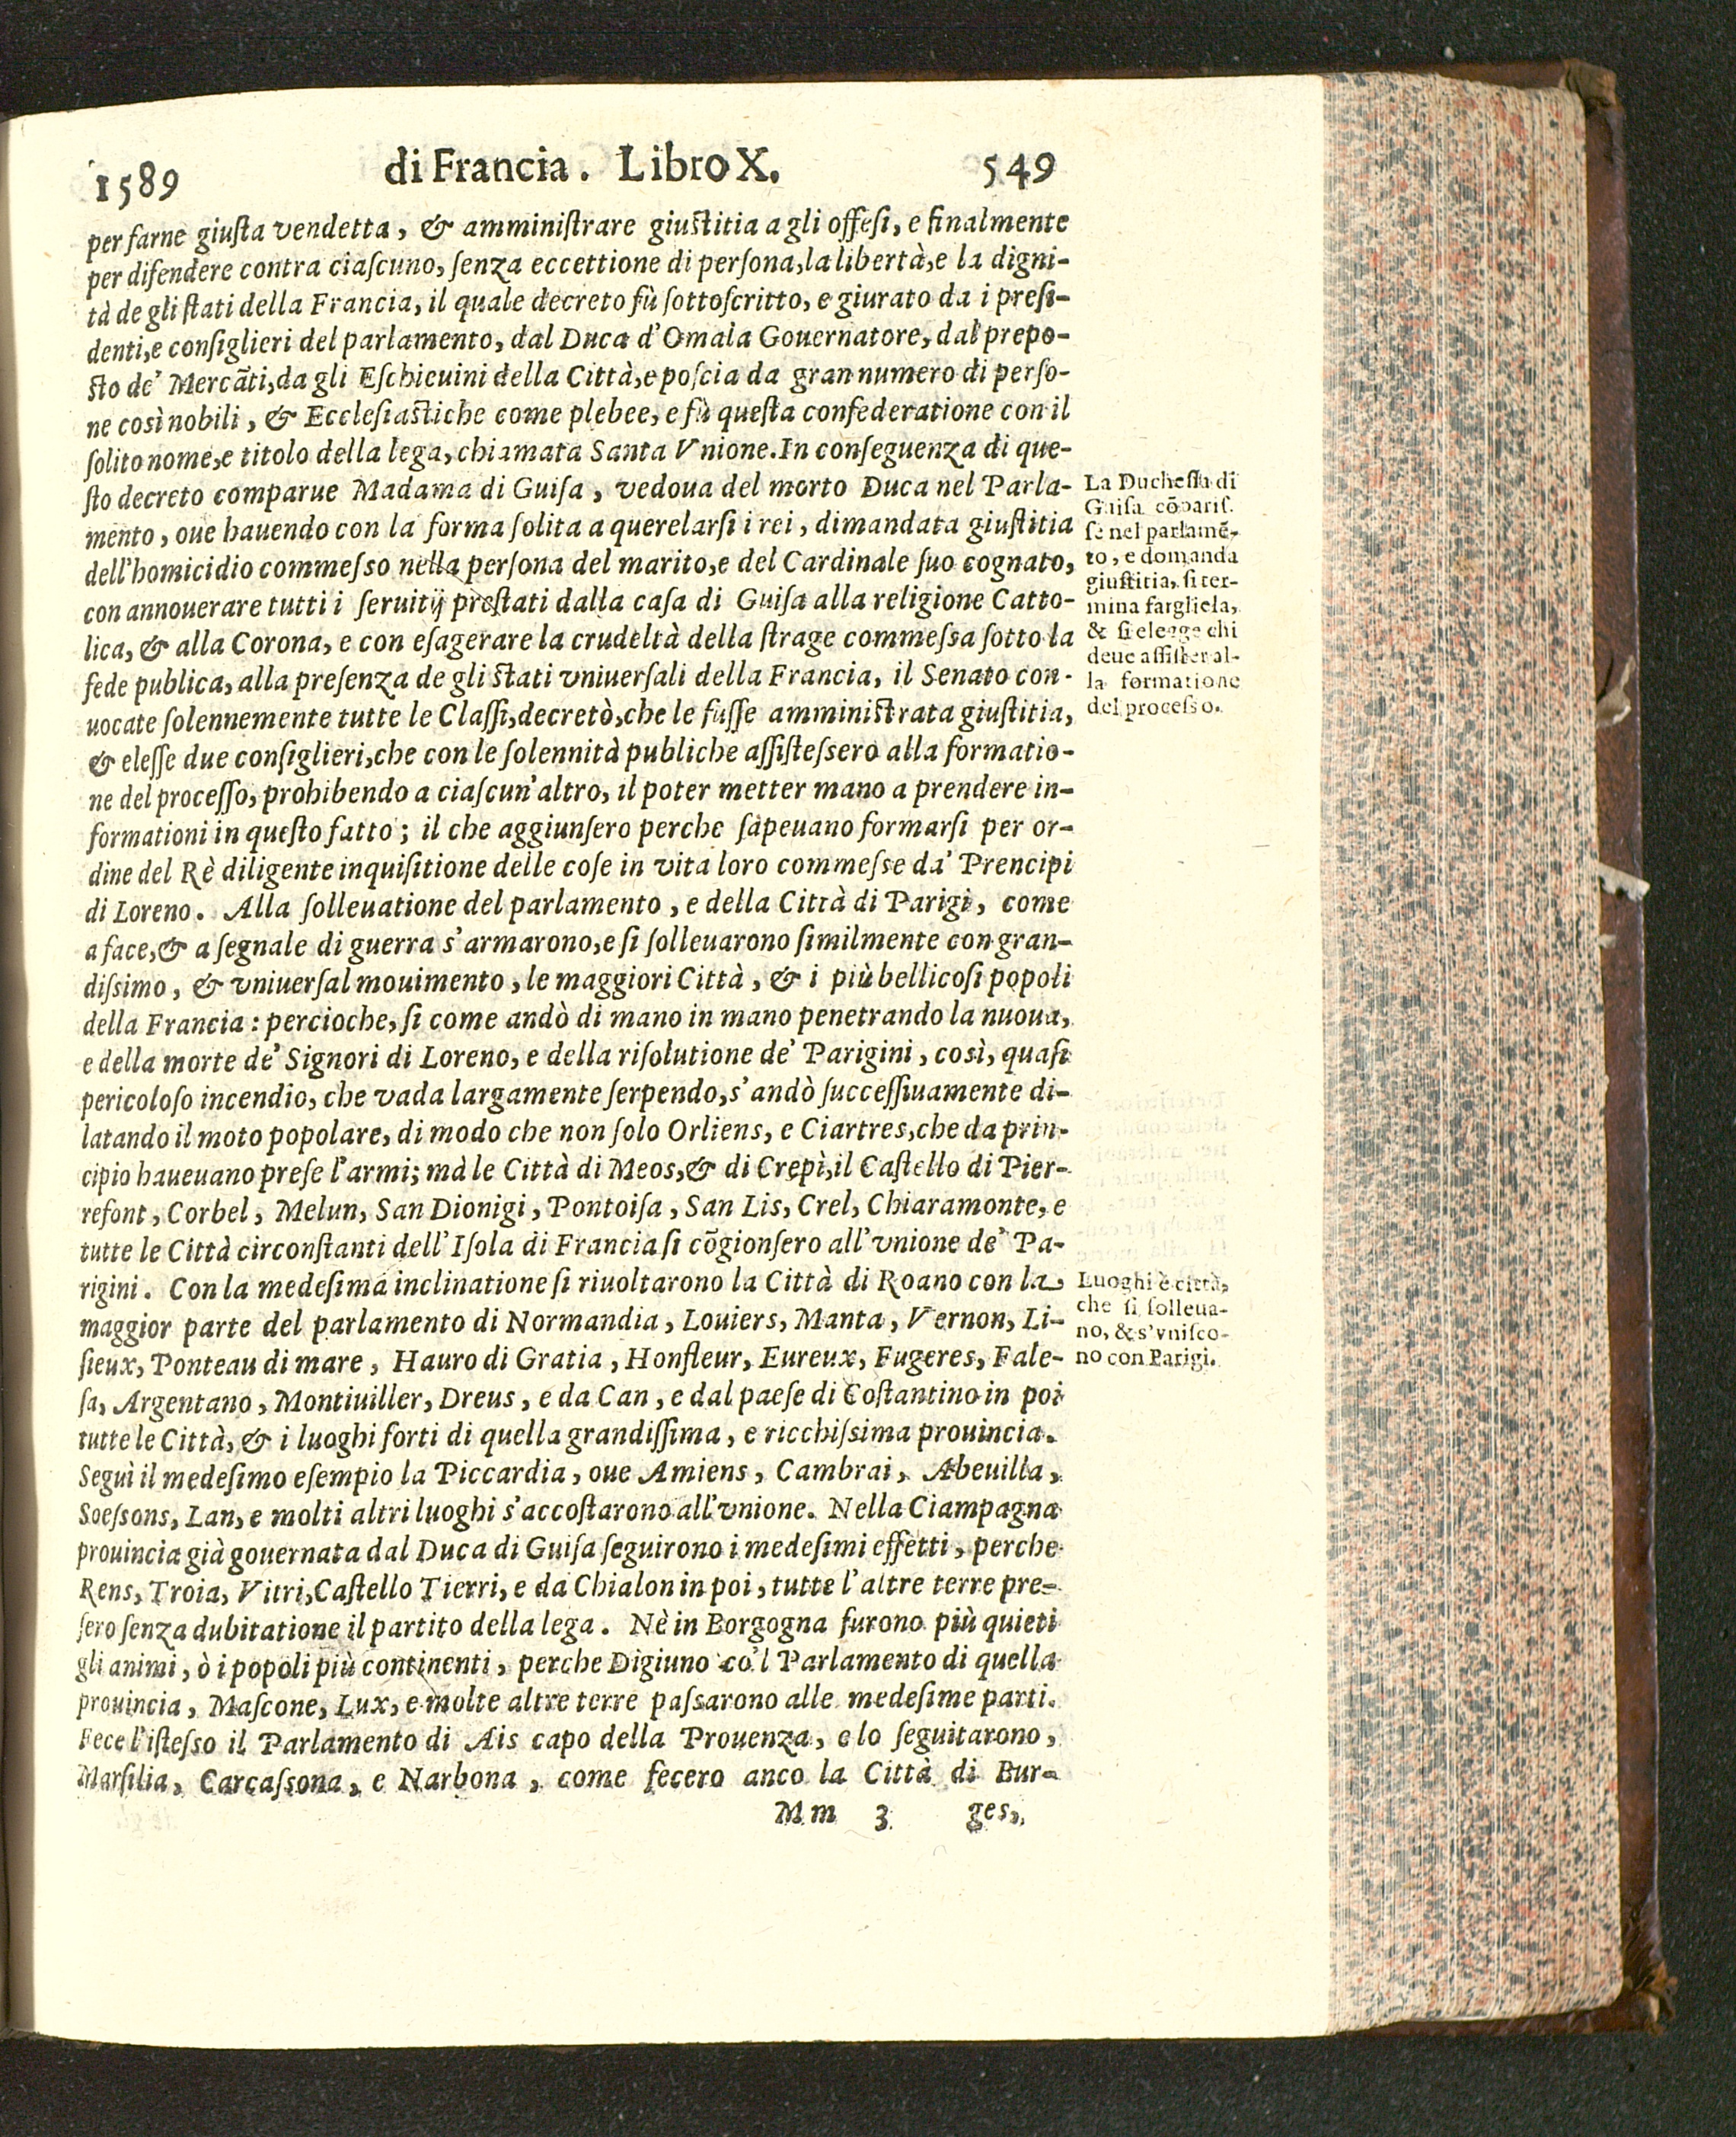 1589 di Francia. Libro X. 549
per farne giuſta vendetta, & amminiſtrare giuſtitia a gli offeſi, e finalmente
per difendere contra ciaſcuno, ſenza eccettione di perſona, la libertà, e la digni-
tà de gli ſtati della Francia, il quale decreto fù ſottoſcritto, e giurato da i preſi-
denti, e conſiglieri del parlamento, dal Duca d'Omala Gouernatore, dal prepo-
ſto de' Mercãti, da gli Eſchieuini della Città, e poſcia da gran numero di perſo-
ne così nobili, & Eccleſiaſtiche come plebee, e fù queſta confederatione con il
ſolito nome, e titolo della lega, chiamata Santa Vnione. In conſeguenza di que-
ſto decreto comparue Madama di Guiſa, vedoua del morto Duca nel Parla-
mento, oue hauendo con la forma ſolita a querelarſi i rei, dimandata giuſtitia
dell'homicidio commeſſo nella perſona del marito, e del Cardinale ſuo cognato,
con annouerare tutti i ſeruitij preſtati dalla caſa di Guiſa alla religione Catto-
lica, & alla Corona, e con eſagerare la crudeltà della ſtrage commeſſa ſotto la
fede publica, alla preſenza de gli ſtati vniuerſali della Francia, il Senato con-
uocate ſolennemente tutte le Claſſi, decretò, che le fuſſe amminiſtrata giuſtitia,
& eleſſe due conſiglieri, che con le ſolennità publiche aſſiſteſſero alla formatio-
ne del proceſſo, prohibendo a ciaſcun'altro, il poter metter mano a prendere in-
formationi in queſto fatto; il che aggiunſero perche ſapeuano formarſi per or-
dine del Rè diligente inquiſitione delle coſe in vita loro commeſſe da' Prencipi
di Loreno. Alla ſolleuatione del parlamento, e della Città di Parigi, come
a face, & a ſegnale di guerra s'armarono, e ſi ſolleuarono ſimilmente con gran-
diſsimo, & vniuerſal mouimento, le maggiori Città, & i più bellicoſi popoli
della Francia: percioche, ſi come andò di mano in mano penetrando la nuoua,
e della morte de' Signori di Loreno, e della riſolutione de' Parigini, così, quaſi
pericoloſo incendio, che vada largamente ſerpendo, s'andò ſucceſſiuamente di-
latando il moto popolare, di modo che non ſolo Orliens, e Ciartres, che da prin-
cipio haueuano preſe l'armi; mà le Città di Meos, & di Crepì, il Caſtello di Pier-
refont, Corbel, Melun, San Dionigi, Pontoiſa, San Lis, Crel, Chiaramonte, e
tutte le Città circonſtanti dell'Iſola di Francia ſi cõgionſero all'vnione de' Pa-
rigini. Con la medeſima inclinatione ſi riuoltarono la Città di Roano con la
maggior parte del parlamento di Normandia, Louiers, Manta, Vernon, Li-
ſieux, Ponteau di mare, Hauro di Gratia, Honfleur, Eureux, Fugeres, Fale-
ſa, Argentano, Montiuiller, Dreus, e da Can, e dal paeſe di Coſtantino in poi
tutte le Città, & i luoghi forti di quella grandiſſima, e ricchiſsima prouincia.
Seguì il medeſimo eſempio la Piccardia, oue Amiens, Cambrai, Abeuilla,
Soeſsons, Lan, e molti altri luoghi s'accoſtarono all'vnione. Nella Ciampagna
prouincia già gouernata dal Duca di Guiſa ſeguirono i medeſimi effetti, perche
Rens, Troia, Vitri, Caſtello Tierri, e da Chialon in poi, tutte l'altre terre pre-
ſero ſenza dubitatione il partito della lega. Nè in Borgogna furono più quieti
gli animi, ò i popoli più continenti, perche Digiuno co'l Parlamento di quella
prouincia, Maſcone, Lux, e molte altre terre paſsarono alle medeſime parti.
Fece l'iſteſso il Parlamento di Ais capo della Prouenza, e lo ſeguitarono,
Marſilia, Carcaſsona, e Narbona, come fecero anco la Città di Bur-
Mm 3 ges,
La Ducheſſa di
Guiſa cõpariſ.
ſe nel parlamẽ-
to, e domanda
giuſtitia, ſi ter-
mina fargliela,
& ſi elegge chi
deue aſſiſter al-
la formatione
del proceſſo.
Luoghi è città,
che ſi ſolleua-
no, & s'vniſco-
no con Parigi.